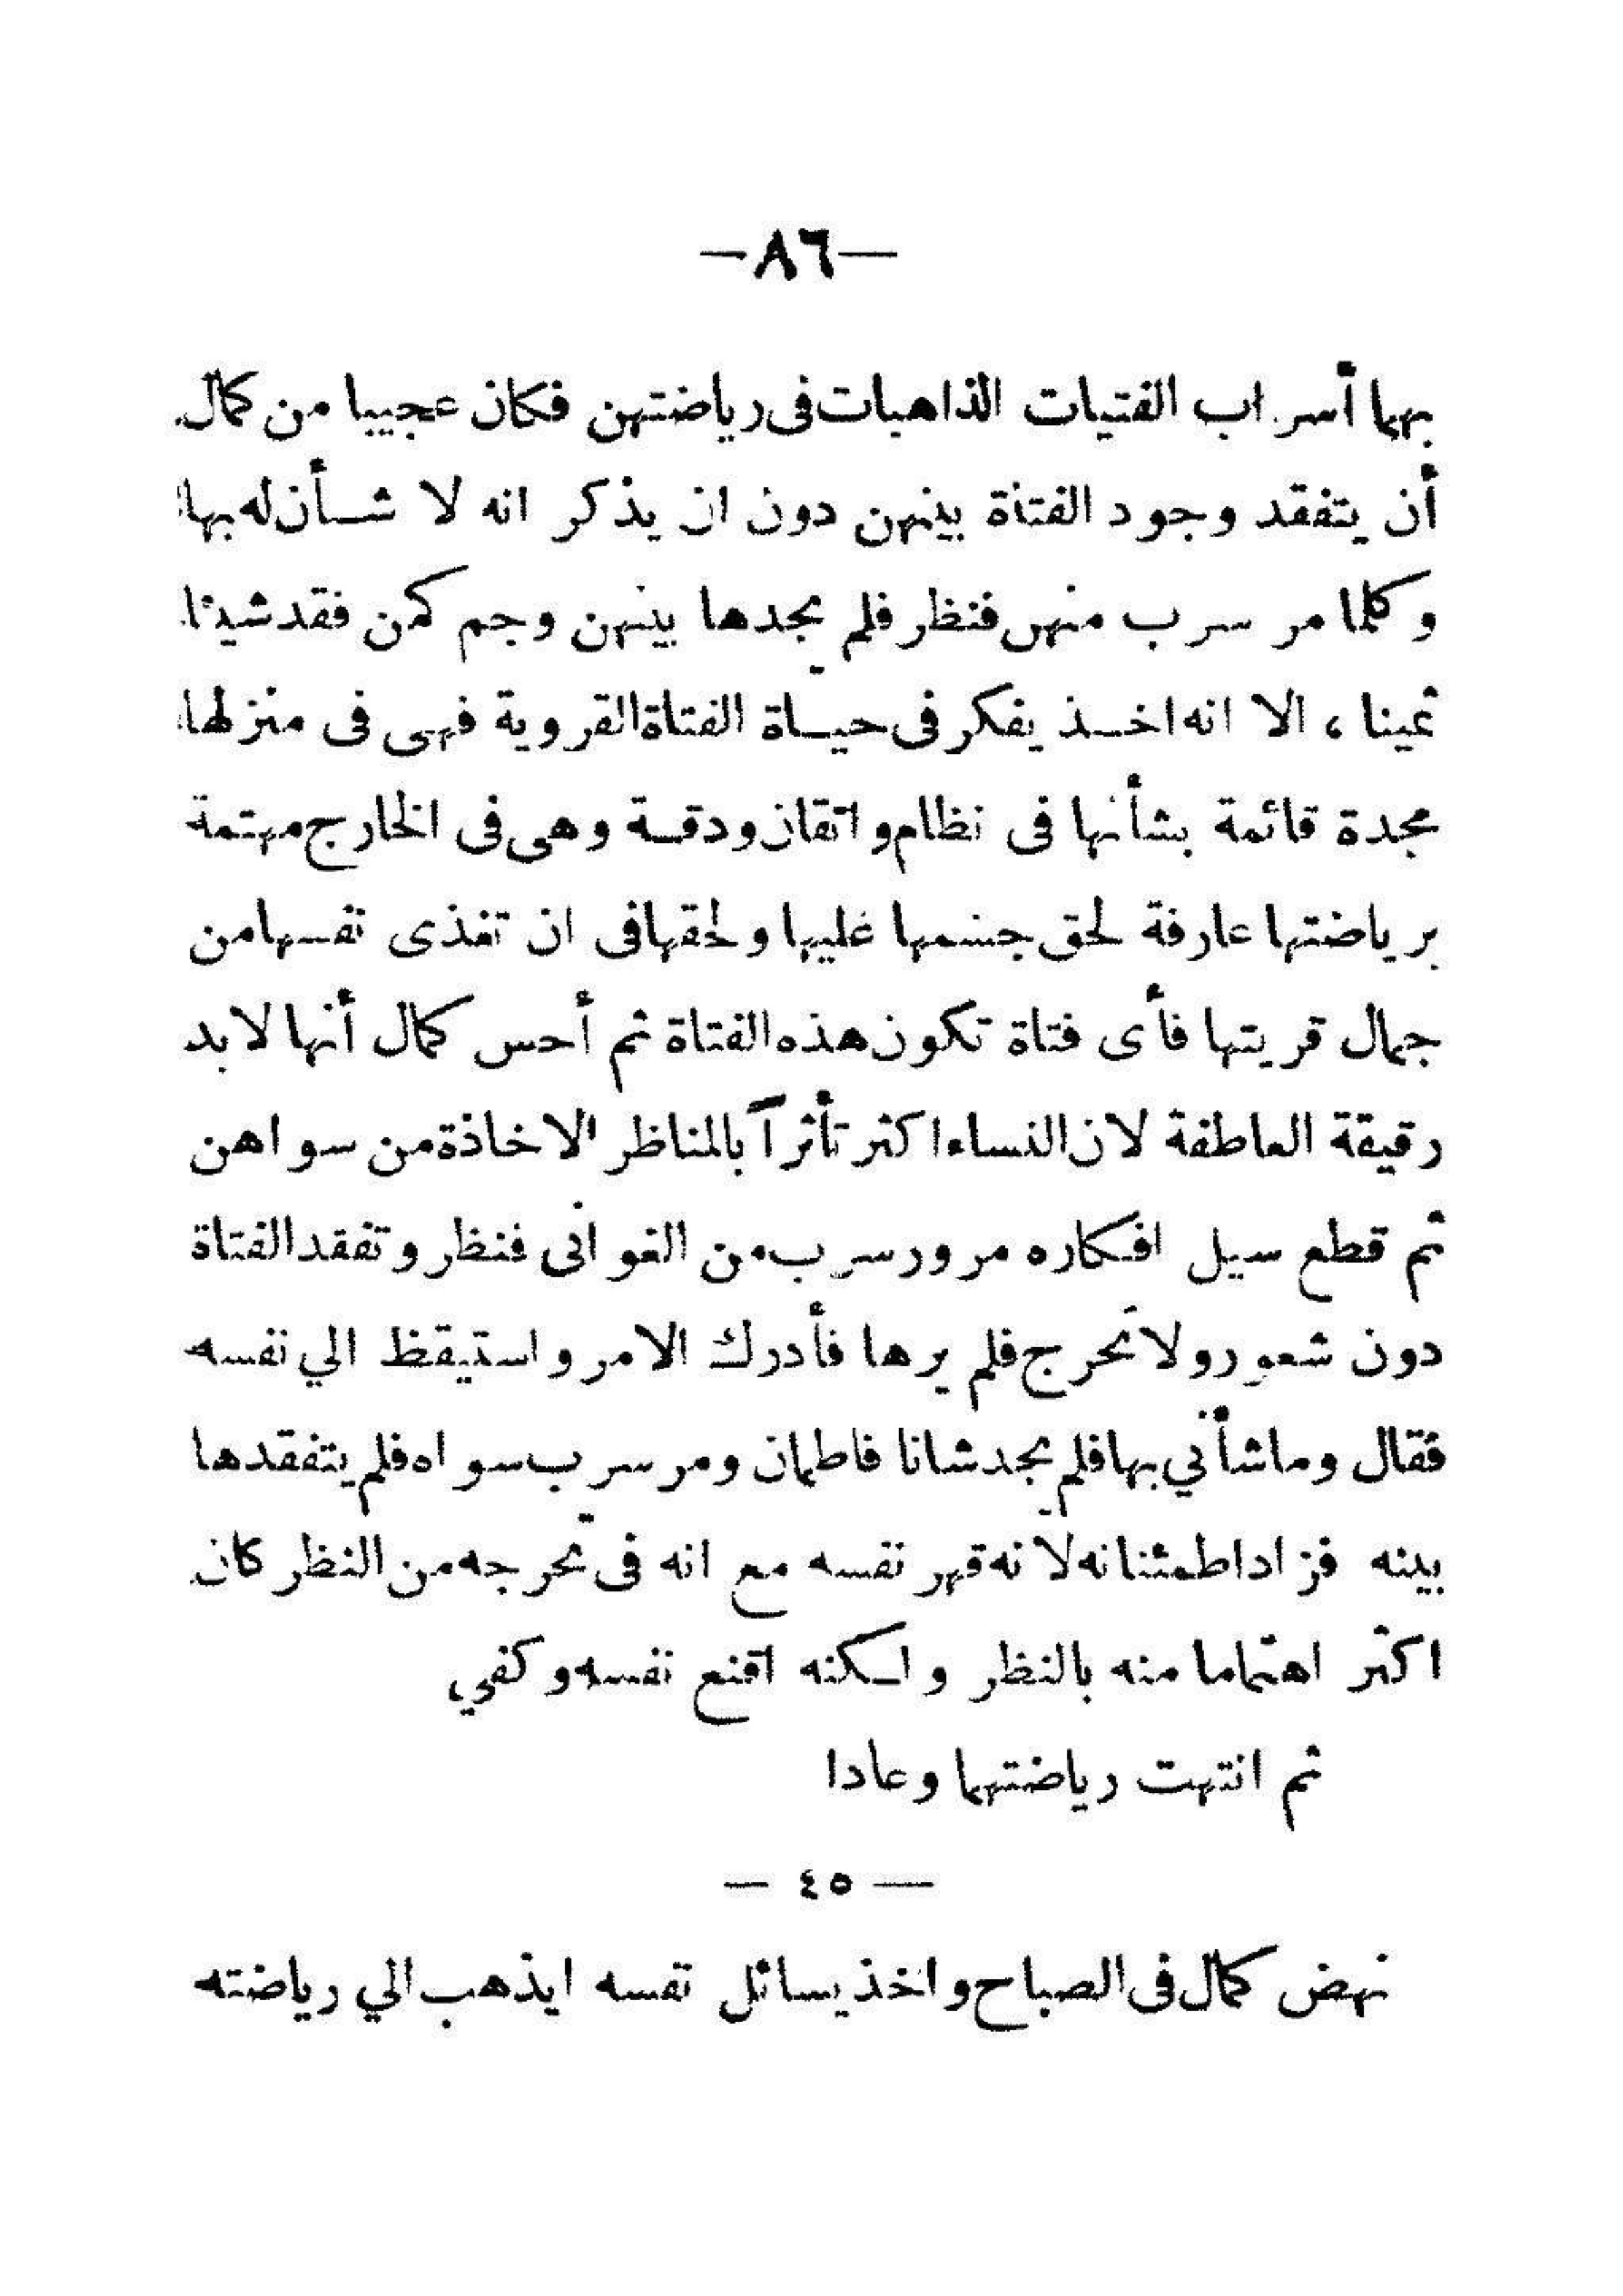 —٨٦—
بهما أسراب الفتيات الذاهبات فى رياضتهن فكان عجيبا من كمال
أن يتفقد وجود الفتاة بينهن دون ان يذكر انه لا شأن له بها
وكلما مر سرب منهن فنظر فلم يجدها بينهن وجم كمن فقد شيئا
ثمينا ، الا انه اخذ يفكر فى حياة الفتاة القروية فهى فى منزلها
مجدة قائمة بشأنها فى نظام واتقان ودقة وهى فى الخارج مهتمة
برياضتها عارفة لحق جسمها عليها ولحقها فى ان تغذى نفسها من
جمال قريتها فأى فتاة تكون هذه الفتاة ثم أحس كمال أنها لا بد
رقيقة العاطفة لان النساء اكثر تأثرآ بالمناظر الاخاذة من سواهن
ثم قطع سيل افكاره مرور سرب من الغوانى فنظر وتفقد الفتاة
دون شعور ولا تحرج فلم يرها فأدرك الامر واستيقظ الي نفسه
فقال وما شأني بها فلم يجد شانا فاطمان ومر سرب سواه فلم يتفقدها
بينه فزاد اطمئنانه لانه قهر نفسه مع انه فى تحرجه من النظر كان
اكثر اهتماما منه بالنظر ولكنه اقنع نفسه وكفي
ثم انتهت رياضتهما وعادا
— ٤٥ —
نهض كمال فى الصباح واخذ يسائل نفسه ايذهب الي رياضته